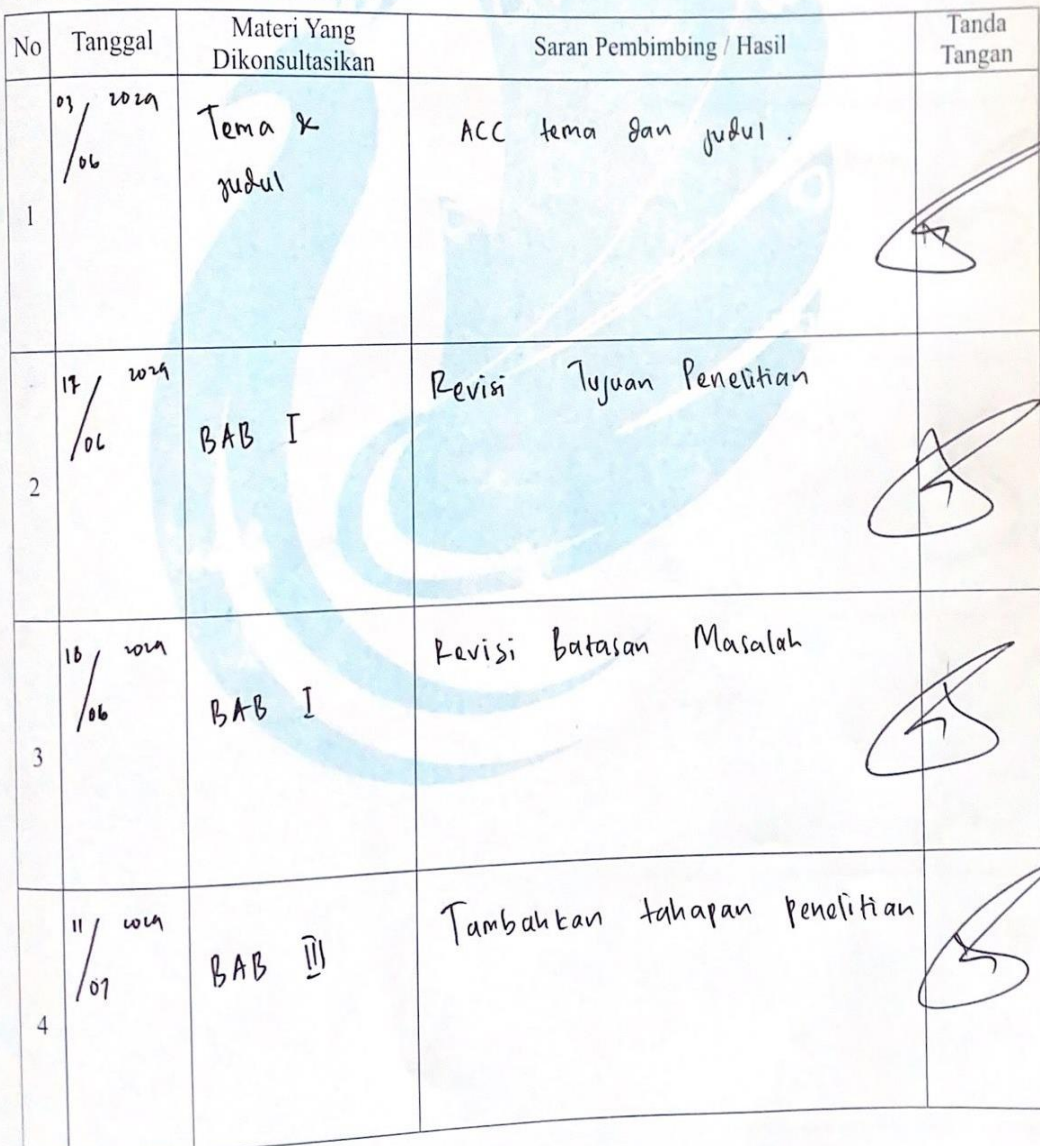 No Tanggal Materi Yang Dikonsultasikan Saran Pembimbing / Hasil Tanda Tangan
1 03/06 2024 Tema & judul ACC tema dan judul.
2 17/06 2024 BAB I Revisi Tujuan Penelitian
3 18/06 2024 BAB I Revisi Batasan Masalah
4 11/07 2024 BAB III Tambahkan tahapan penelitian